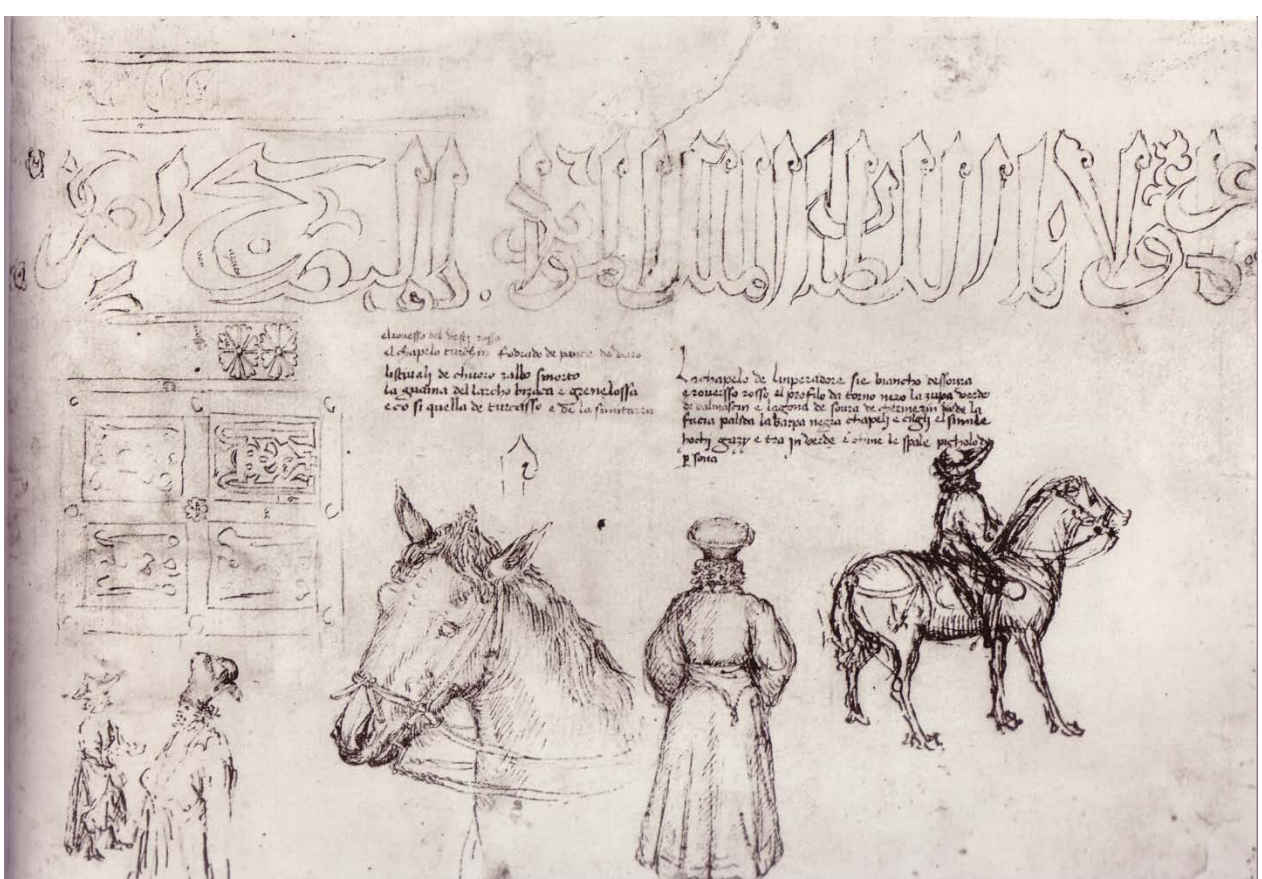 لمولانا السلطان الملك المؤيد
elrouesso del vesti rosso
el chapelo turchin fodrado de pance de varo
listiuali de chuoro zallo smorto
la guaina del larcho bizaca e grenelossa
e cosi quella de turcasso e de la simitarra
Lachapelo de linperadore sie biancho dessoura
e rouersso rosso el profilo datorno nero la zupa verde
de dalmaschin e lagona de soura de chermezin
facia palida la barpa negra chapeli e cilgli el simile
hochi grizy e tra in verde e chine le spale picholo de
persona